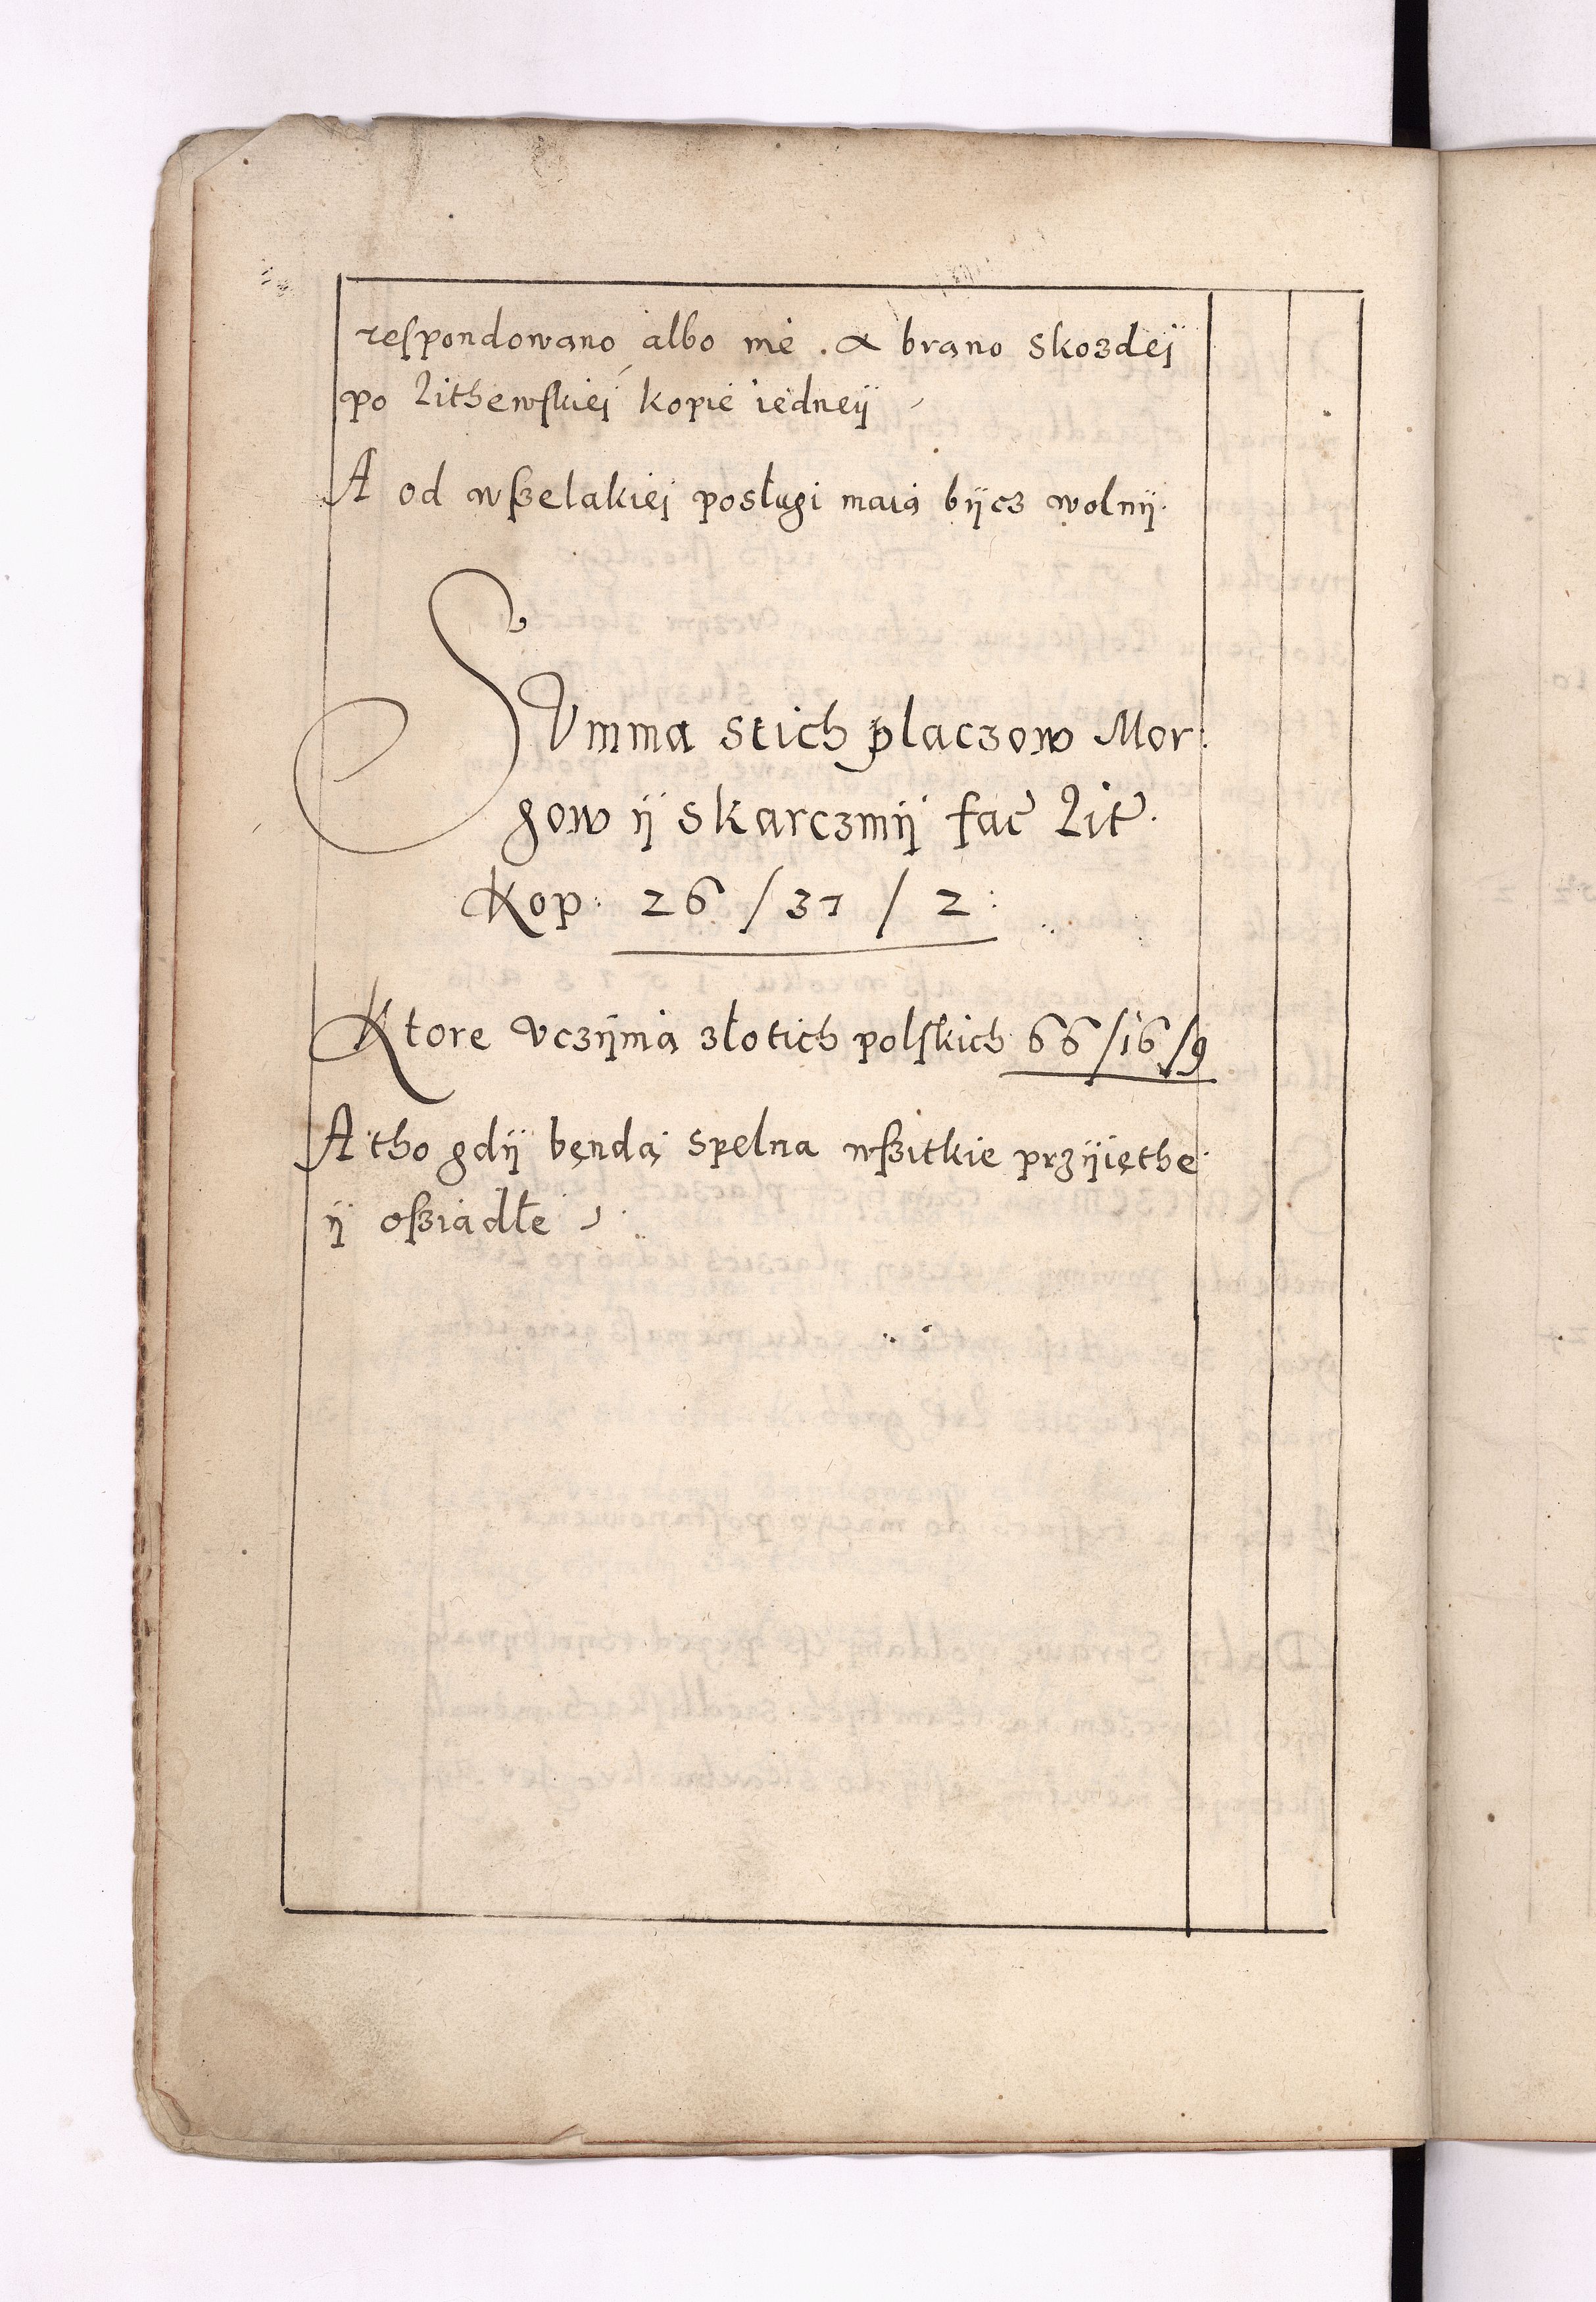 respondowano albo nie . A brano skozdeij
po Lithewskieij kopie iedneij
A od wſzelakieij posługi maią bijcz wolnij.
Summa stich placzow Mor:
gow ij skarczmij fac Lit.
Kop: 26 / 31 / 2 :
Ktore vczijnią złotich polſkich 66/16/9
A tho gdij bęndą spelna wſzitkie przijięthe
ij oſziadłe